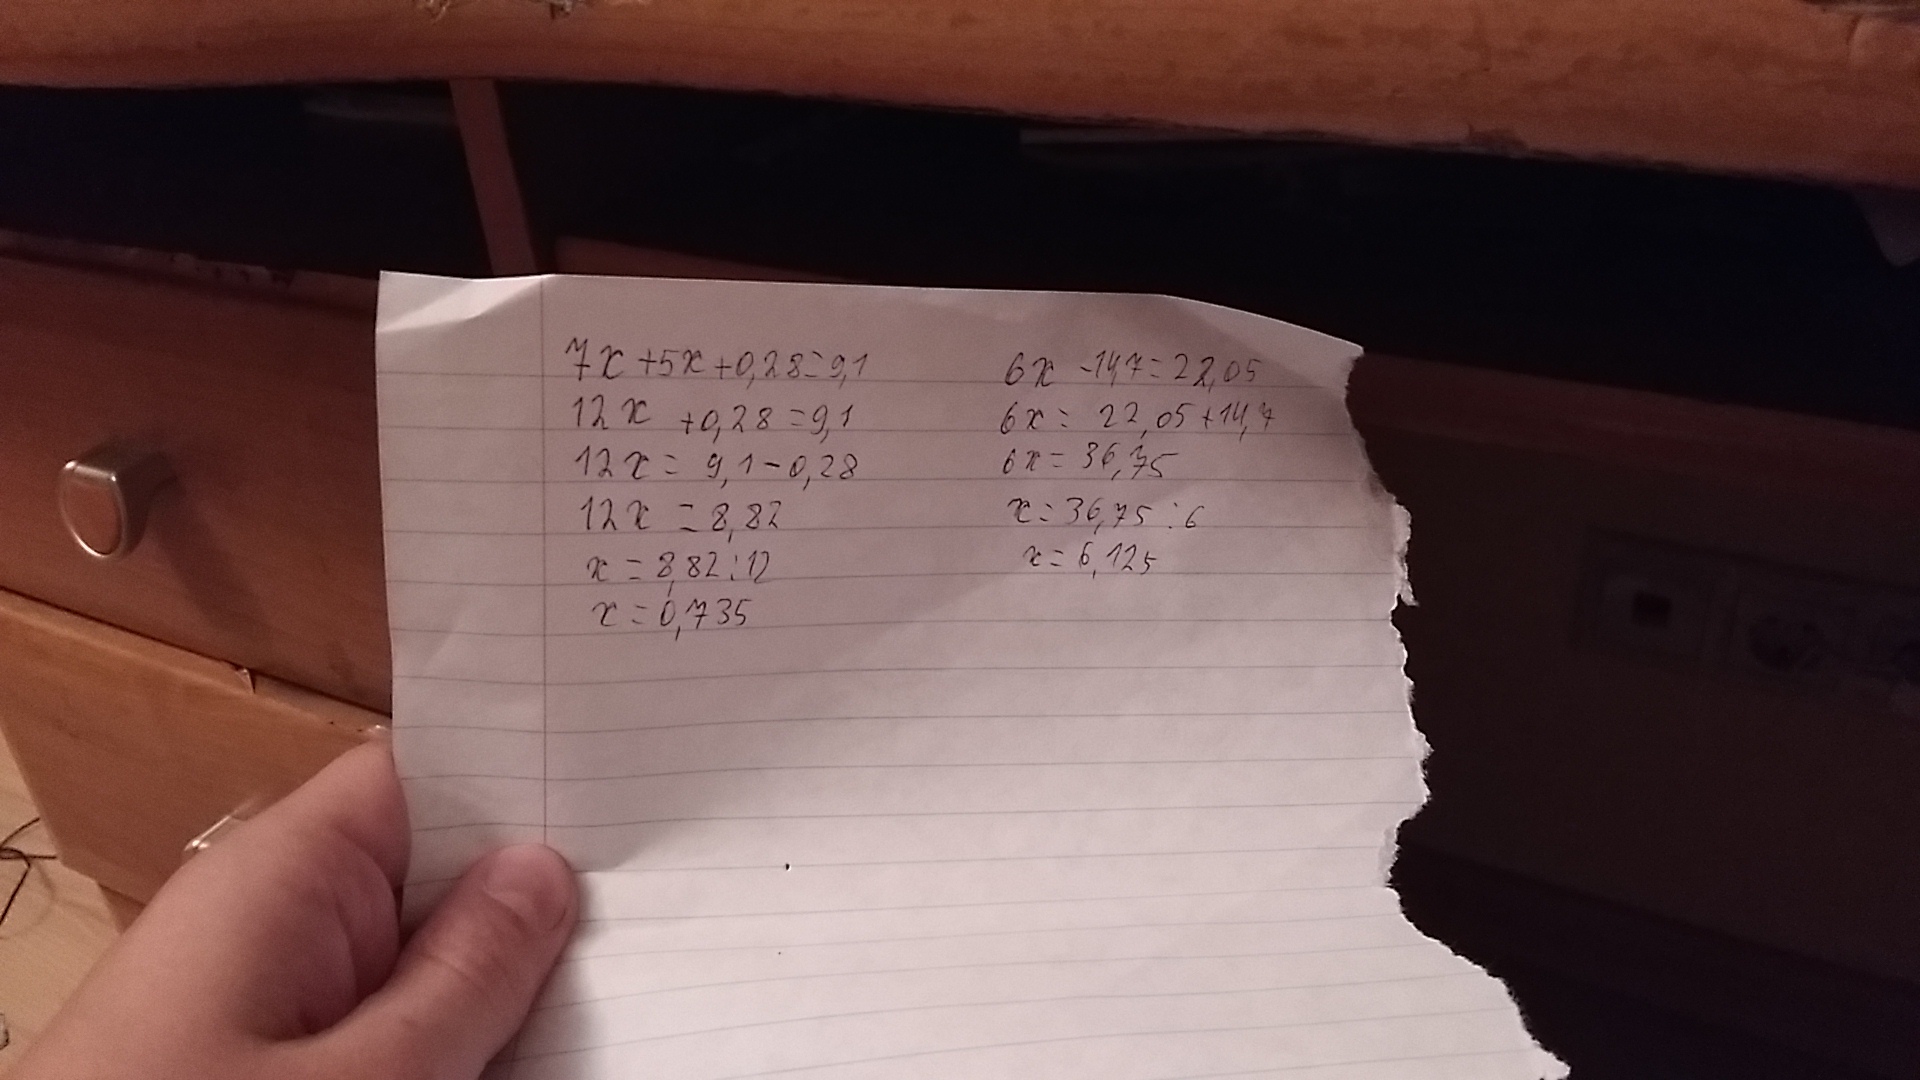 7x+5x+0,28=9,1
12x +0,28=9,1
12x= 9,1-0,28
12x = 8,82
x = 8,82:12
x = 0,735
6x -14,7=22,05
6x= 22,05+14,7
6x= 36,75
x= 36,75:6
x= 6,125